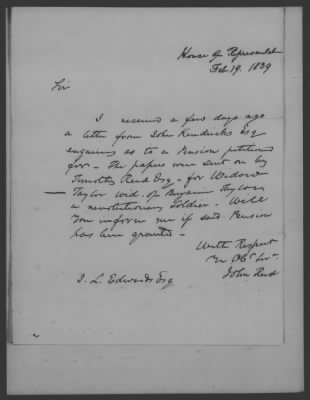 House of Representa
Feb 19. 1839
Sir
I received a few days ago
a letter from John Kendricks Esq
enquiring as to a Pension petitioned
for – The papers were sent on by
Timothy Reed Esq – for Widow
— Taylor wid. of Taylor
a revolutionary Soldier – Will
You inform me if said Pension
has been granted –
With Respect
Yr Obt Svt
John Reed
J. L. Edwards Esq